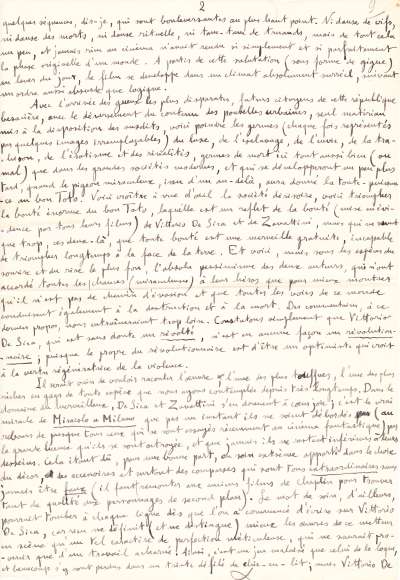 2
quelques séquences, dis-je, qui sont bouleversantes au plus haut point. Ni danse de vifs,
ni danse des morts, ni danse rituelle, ni tam-tam de , mais de tout cela
un peu, et jamais rien au cinéma n'avait rendu si simplement et si parfaitement
la phase originelle d'un monde. A partir de cette salutation (sous forme de gigue)
au lever du jour, le film se développe dans un climat absolument surréel, suivant
un ordre aussi absurde que logique.
Avec l'arrivée des gueux les plus disparates, futurs citoyens de cette république
besacière, avec le déversement du contenu des poubelles urbaines, seul matériau
mis à la disposition des maudits, voici poindre les germes (chaque fois représentés
par quelques images irremplaçables) du luxe, de l'esclavage, de l'envie, de la tra-
hison, de l'érotisme et des rivalités, germes de mort ici tout aussi bien (ou
mal) que dans les grandes sociétés modernes, et qui se développeront un peu plus
tard, quand le pigeon miraculeux, issu d'un au-delà, aura donné la toute-puissan-
ce au bon Toto. Voici croître à vue d'œil la société dérisoire, voici triompher
la bonté inconnue du bon Toto, laquelle est un reflet de la bonté (mise en évi-
dence par tous leurs films) de Vittorio De Sica et de Zavattini, mais qui ne savent
que trop, ces deux-là, que toute bonté est une merveille gratuite, incapable
de triompher longtemps à la face de la terre. Et voici, mais sous les espèces du
sourire et du rire le plus fou, l'absolu pessimisme des deux auteurs, qui n'ont
accordé toutes les chances (miraculeuses) à leurs héros que pour mieux montrer
qu'il n'est pas de chemin d'évasion et que toutes les voies de ce monde
conduisent également à la destruction et à la mort. Des commentaires, à ce
dernier propos, nous entraîneraient trop loin. Constatons simplement que Vittorio
De Sica, qui est sans doute un révolté, n'est en aucune façon un révolution-
-naire, puisque le propre du révolutionnaire est d'être un optimiste qui croit
à la vertu régénératrice de la violence.
Il serait vain de vouloir raconter l'œuvre, l'une des plus touffues, l'une des plus
riches en gags de toute espèce que nous ayons contemplées depuis très longtemps. Dans le
domaine du merveilleux, De Sica et Zavattini s'en donnent à cœur joie; c'est le vrai
miracle de Miracolo a Milano que pas un instant ils ne soient débordés (au
rebours de presque tous ceux qui se sont essayés récemment au cinéma fantastique) par
la grande licence qu'ils se sont octroyée, et que jamais ils ne restent inférieurs à leurs
desseins. Cela tient dû, pour une bonne part, au soin extrême apporté dans le choix
du décor, des accessoires et surtout des comparses qui sont tous extraordinaires sans
jamais être faux (il faut remonter aux anciens films de Chaplin pour trouver
tant de qualité aux personnages de second plan). Le mot de soin, d'ailleurs,
pourrait tomber à chaque ligne dès que l'on a commencé d'écrire sur Vittorio
De Sica, car rien ne définit (et ne distingue) mieux les œuvres de ce metteur
en scène qu'un tel caractère de perfection méticuleuse, qui ne saurait pro-
-venir que d'un travail acharné. Ainsi, c'est un jeu malaisé que celui de la logue,
et beaucoup s'y sont perdus dans un triste défilé de chie-en-lit; mais Vittorio De